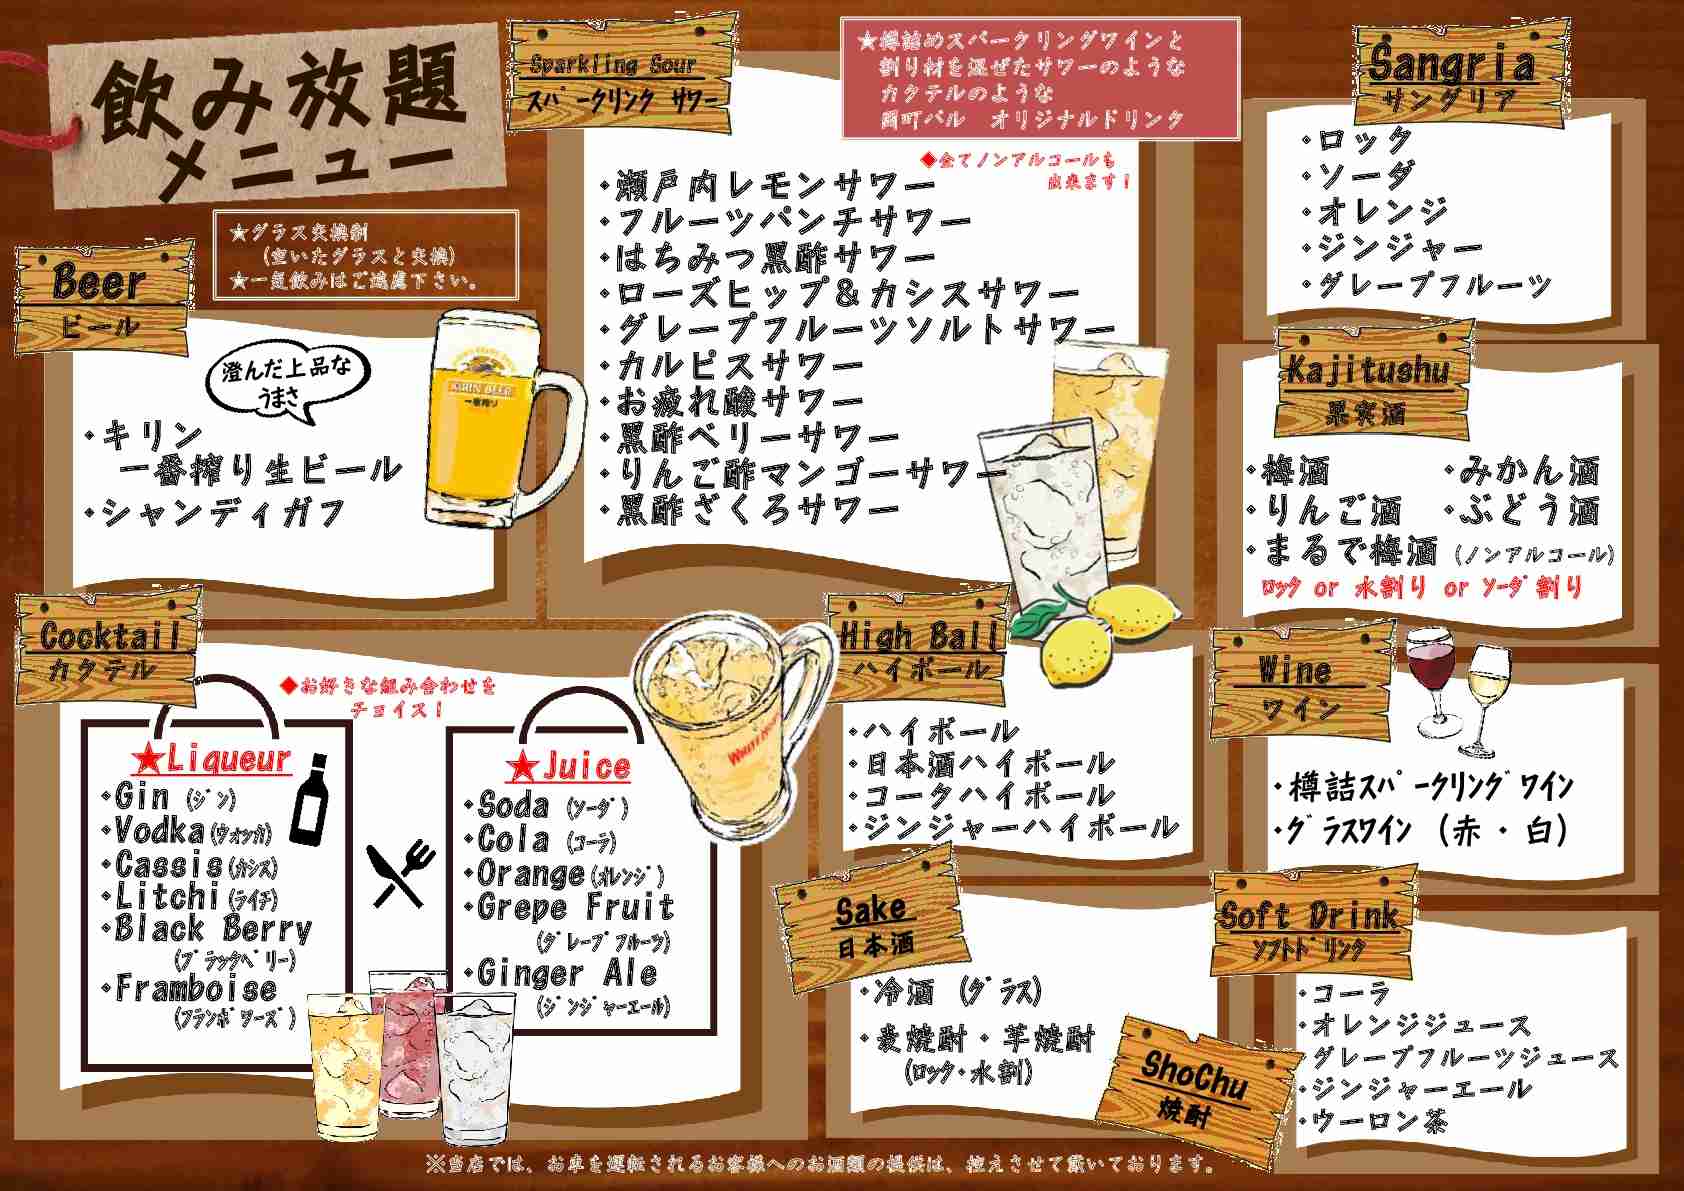 飲み放題
メニュー
★グラス交換制
(空いたグラスと交換)
★一気飲みはご遠慮下さい。
Beer
ビール
澄んだ上品な
うまさ
・キリン
一番搾り生ビール
・シャンディガフ
KIRIN BEER
一番搾り
Sparkling Sour
スパークリンク サワー
★樽詰めスパークリングワインと
割り材を混ぜたサワーのような
カクテルのような
岡町バル オリジナルドリンク
◆全てノンアルコールも
出来ます!
・瀬戸内レモンサワー
・フルーツパンチサワー
・はちみつ黒酢サワー
・ローズヒップ&カシスサワー
・グレープフルーツソルトサワー
・カルピスサワー
・お疲れ酸サワー
・黒酢ベリーサワー
・りんご酢マンゴーサワー
・黒酢ざくろサワー
Sangria
サングリア
・ロック
・ソーダ
・オレンジ
・ジンジャー
・グレープフルーツ
Kajitushu
果実酒
・梅酒 ・みかん酒
・りんご酒 ・ぶどう酒
・まるで梅酒 (ノンアルコール)
ロック or 水割り or ソーダ割り
Cocktail
カクテル
◆お好きな組み合わせを
チョイス!
★Liqueur
・Gin (ジン)
・Vodka(ウォッカ)
・Cassis(カシス)
・Litchi(ライチ)
・Black Berry
(ブラックベリー)
・Framboise
(フランボワーズ)
★Juice
・Soda (ソーダ)
・Cola (コーラ)
・Orange(オレンジ)
・Grepe Fruit
(グレープフルーツ)
・Ginger Ale
(ジンジャーエール)
High Ball
ハイボール
・ハイボール
・日本酒ハイボール
・コークハイボール
・ジンジャーハイボール
Wine
ワイン
・樽詰スパークリングワイン
・グラスワイン (赤・白)
Sake
日本酒
・冷酒 (グラス)
・麦焼酎・芋焼酎
(ロック・水割)
ShoChu
焼酎
Soft Drink
ソフトドリンク
・コーラ
・オレンジジュース
・グレープフルーツジュース
・ジンジャーエール
・ウーロン茶
※当店では、お車を運転されるお客様へのお酒類の提供は、控えさせて戴いております。